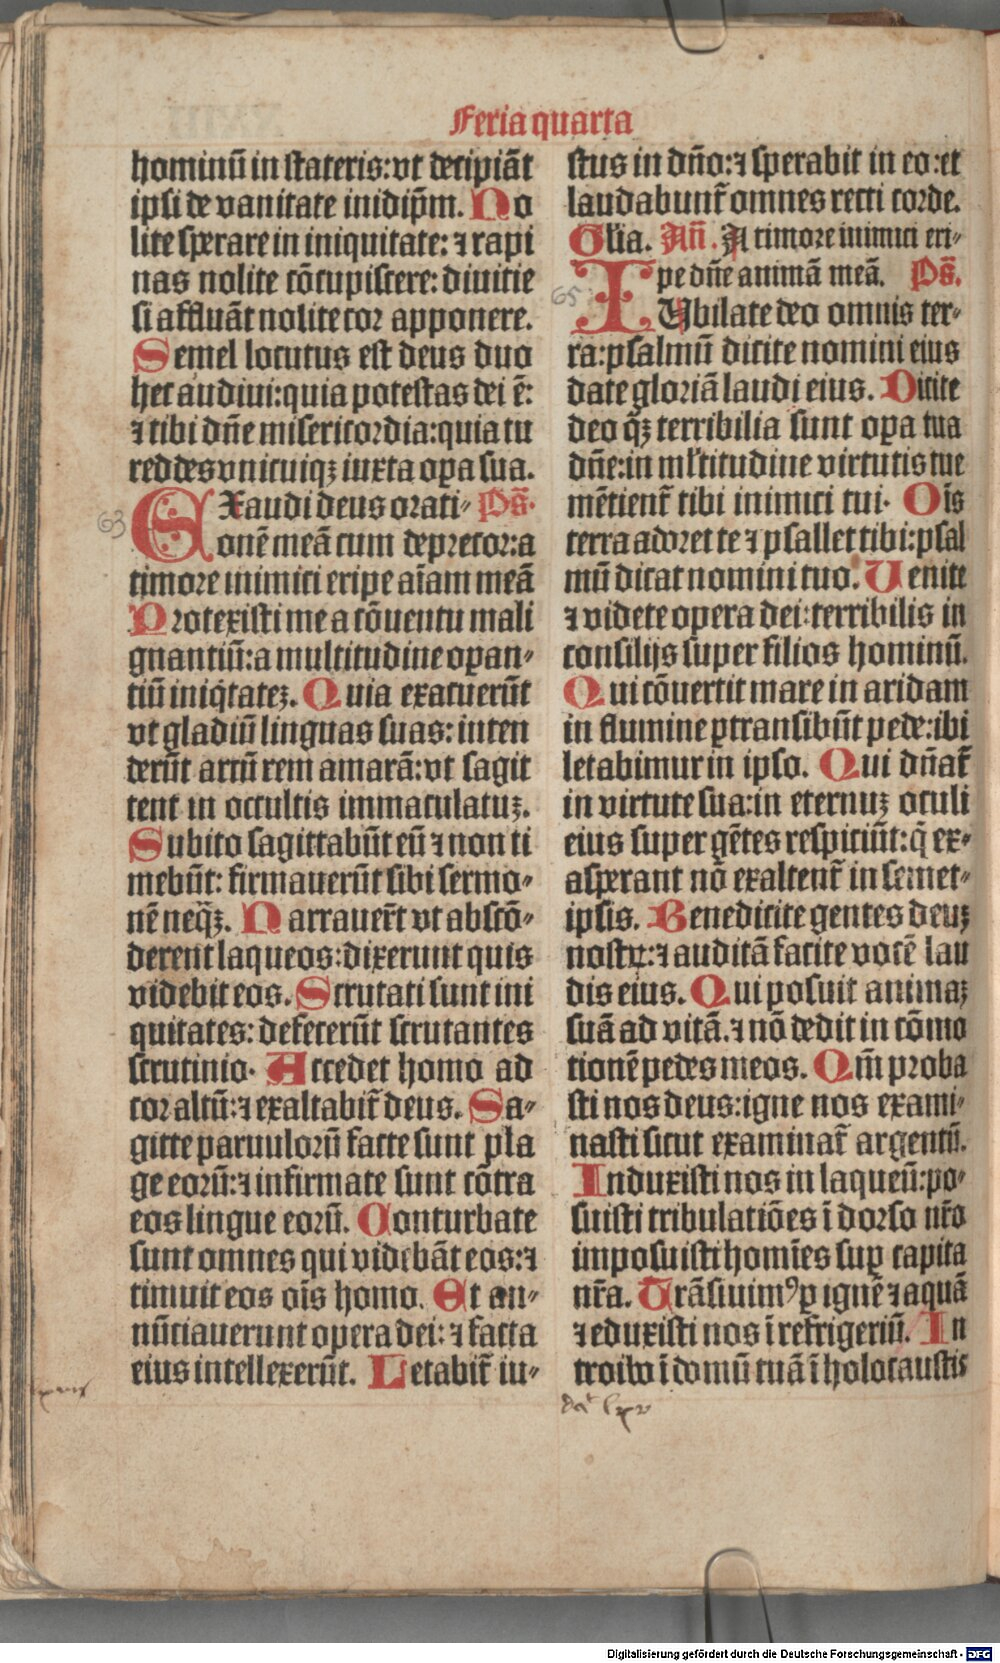 Feria quarta
hominū in stateris: vt decipiāt
ipsi de vanitate in idip̄m. No
lite sperare in iniquitate: ⁊ rapi
nas nolite cōcupiscere: diuitie
si affluāt nolite cor apponere.
Semel locutus est deus duo
hec audiui: quia potestas dei ē:
⁊ tibi dn̄e misericordia: quia tu
reddes vnicuiqꝫ iuxta oꝑa sua.
EXaudi deus orati⸗ Ps̄.
63
onē meā cum deprecor: a
timore inimici eripe aīam meā
Protexisti me a cōuentu mali
gnantiū: a multitudine oꝑan⸗
tiū iniq̇tateꝫ. Quia exacuerūt
vt gladiū linguas suas: inten
derūt arcū rem amarā: vt sagit
tent in occultis immaculatuꝫ.
Subito sagittabūt eū ⁊ non ti
mebūt: firmauerūt sibi sermo⸗
nē neq̄ꝫ. Narrauer̄t vt abscō⸗
derent laqueos: dixerunt quis
videbit eos. Scrutati sunt ini
quitates: defecerūt scrutantes
scrutinio. Accedet homo ad
cor altū: ⁊ exaltabit̄ deus. Sa⸗
gitte paruulorū facte sunt pla
ge eorū: ⁊ infirmate sunt cōtra
eos lingue eorū. Conturbate
sunt omnes qui videbāt eos: ⁊
timuit eos oīs homo. Et an⸗
nūciauerunt opera dei: ⁊ facta
eius intellexerūt. Letabit̄ iu⸗
stus in dn̄o: ⁊ sperabit in eo: et
laudabunt̄ omnes recti corde.
Gl̄ia. An̄. A timore inimici eri⸗
pe dn̄e animā meā. Ps̄.
65
IUbilate deo omnis ter⸗
ra: psalmū dicite nomini eius
date gloriā laudi eius. Dicite
deo q̄ꝫ terribilia sunt oꝑa tua
dn̄e: in ml̄titudine virtutis tue
mētient̄ tibi inimici tui. Oīs
terra adoret te ⁊ psallet tibi: psal
mū dicat nomini tuo. Venite
⁊ videte opera dei: terribilis in
consilijs super filios hominū.
Qui cōuertit mare in aridam
in flumine ꝑtransibūt pede: ibi
letabimur in ipso. Qui dn̄at̄
in virtute sua: in eternuꝫ oculi
eius super gētes respiciūt: q̄ ex⸗
asperant nō exaltent̄ in semet⸗
ipsis. Benedicite gentes deuꝫ
nostꝝ: ⁊ auditā facite vocē lau
dis eius. Qui posuit animaꝫ
suā ad vitā. ⁊ nō dedit in cōmo
tionē pedes meos. Qm̄ proba
sti nos deus: igne nos exami⸗
nasti sicut examinat̄ argentū.
Induxisti nos in laqueū: po⸗
suisti tribulatiōes ī dorso nr̄o
imposuisti homīes suꝑ capita
nr̄a. Trāsiuimꝰ ꝑ ignē ⁊ aquā
⁊ eduxisti nos ī refrigeriū. In
troibo ī domū tuā ī holocaustis
Digitalisierung gefördert durch die Deutsche Forschungsgemeinschaft - DFG